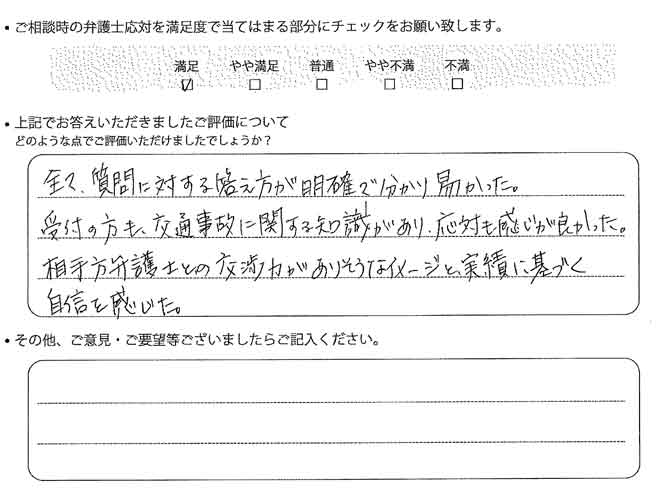 ・ご相談時の弁護士応対を満足度で当てはまる部分にチェックをお願い致します。
満足 やや満足 普通 やや不満 不満
☑ □ □ □ □
・上記でお答えいただきましたご評価について
どのような点でご評価いただけましたでしょうか？
全て、質問に対する答え方が明確で分かり易かった。
受付の方も、交通事故に関する知識があり、応対も感じが良かった。
相手方弁護士との交渉力がありそうなイメージと、実績に基づく
自信を感じた。
・その他、ご意見・ご要望等ございましたらご記入ください。